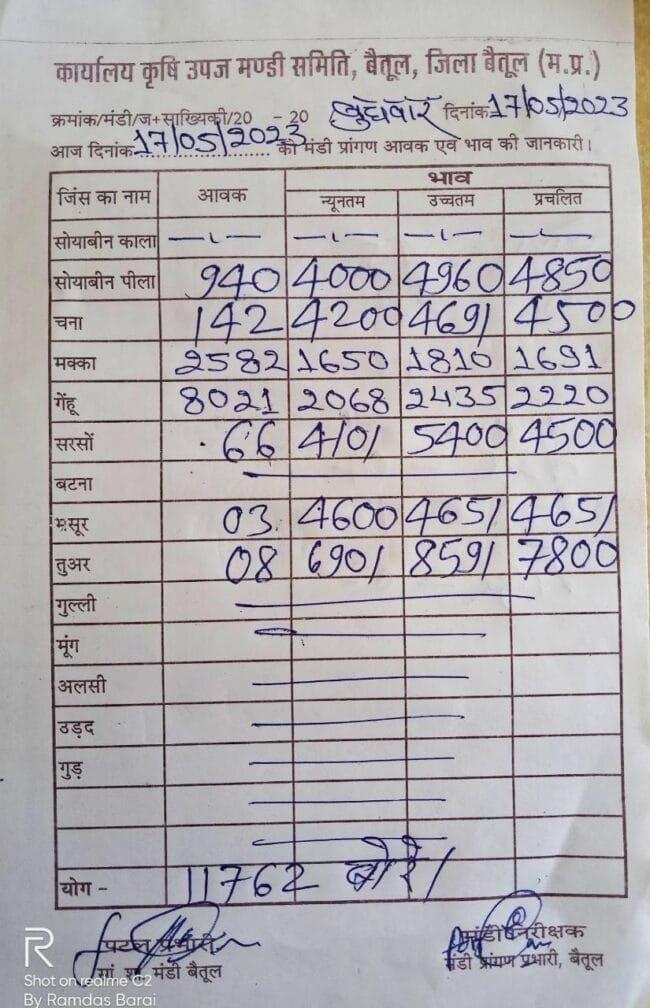 कार्यालय कृषि उपज मण्डी समिति, बैतूल, जिला बैतूल (म.प्र.)
क्रमांक/मंडी/ज+साख्यिकी/20 - 20 बुधवार दिनांक 17/05/2023
आज दिनांक 17/05/2023 की मंडी प्रांगण आवक एवं भाव की जानकारी।
जिंस का नाम आवक भाव
न्यूनतम उच्चतम प्रचलित
सोयाबीन काला
सोयाबीन पीला 940 4000 4960 4850
चना 142 4200 4691 4500
मक्का 2582 1650 1810 1691
गेंहू 8021 2068 2435 2220
सरसों 66 4101 5400 4500
बटना
मसूर 03 4600 4651 4651
तुअर 08 6901 8591 7800
गुल्ली
मूंग
अलसी
उड़द
गुड़
योग - 11762 बोरे/
पटल प्रभारी मंडी निरीक्षक
मंडी बैतूल मंडी प्रांगण प्रभारी, बैतूल
R
Shot on realme C2
By Ramdas Barai